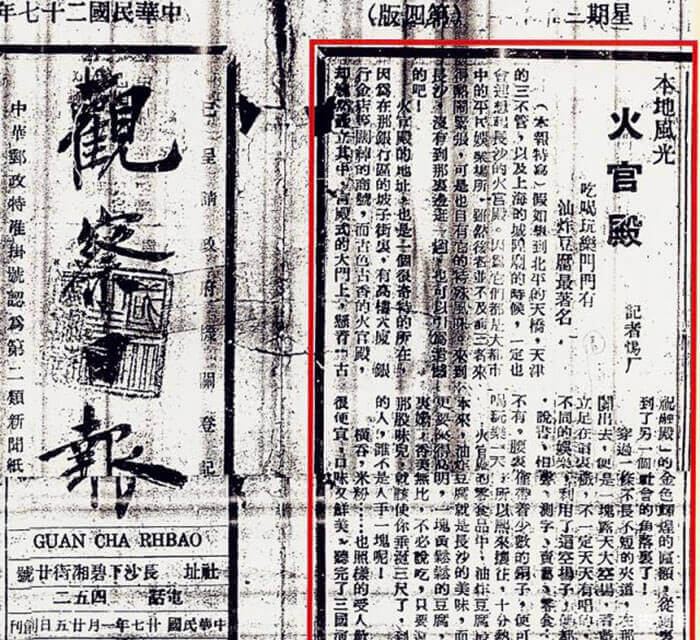 星期二
(第四版)
中華民國二十七年
本地風光
火官殿
吃喝玩樂門門有
油炸豆腐最著名,
記者惕厂
(本報特寫)假如想到北平的天橋,天津
的三不管,以及上海的城隍廟的時候,一定也
會連想到長沙的火官殿。因為它們都是大都市
中的平民娛樂場所。雖然後者並不及前三者來
得熱鬧緊張,可是也自有它的特殊風味。來到
長沙,沒有到那裏一趟,也可以引為遺憾
的吧!
火官殿的地址,也是一個很奇特的所在。
因為在那銀行區的坡子街裏,有高樓大廈,銀
行金店等的商號,而古色古香的火官殿,
却立其中,宮殿式的大門上,懸着「古
殿」的金色輝煌的匾額,從
到了另一個社會的角落裏了!
穿過一條不長不短的夾道,
出去,便是一塊露天大空場,
立足在裏,不一定天天有唱的,
不同的娛樂,利用了這空場子,便
,說書,相聲,測字,賣藝,零食,
不有。腰裏帶着少數的銅子,便可
喝玩樂一天,所以熙來攘往,十分熱
火官殿的零食品中,油炸豆腐
本來,油炸豆腐就是長沙的美味,而
更要高明,一塊黃鬆鬆的豆腐,
香美無比,不必說吃,只要
那股味兒,就該使你垂涎三尺了,
的人,誰不是人手一塊呢!
米粉……也照樣的受人歡
很便宜,口味又鮮美,聽完了三國
觀察日報
已呈請改府機關登記
中華郵政特准掛號認為第二類新聞紙
GUAN CHA RHBAO
社址 長沙下碧湘街廿號
電話 四五二
中華民國廿七年一月廿五日創刊